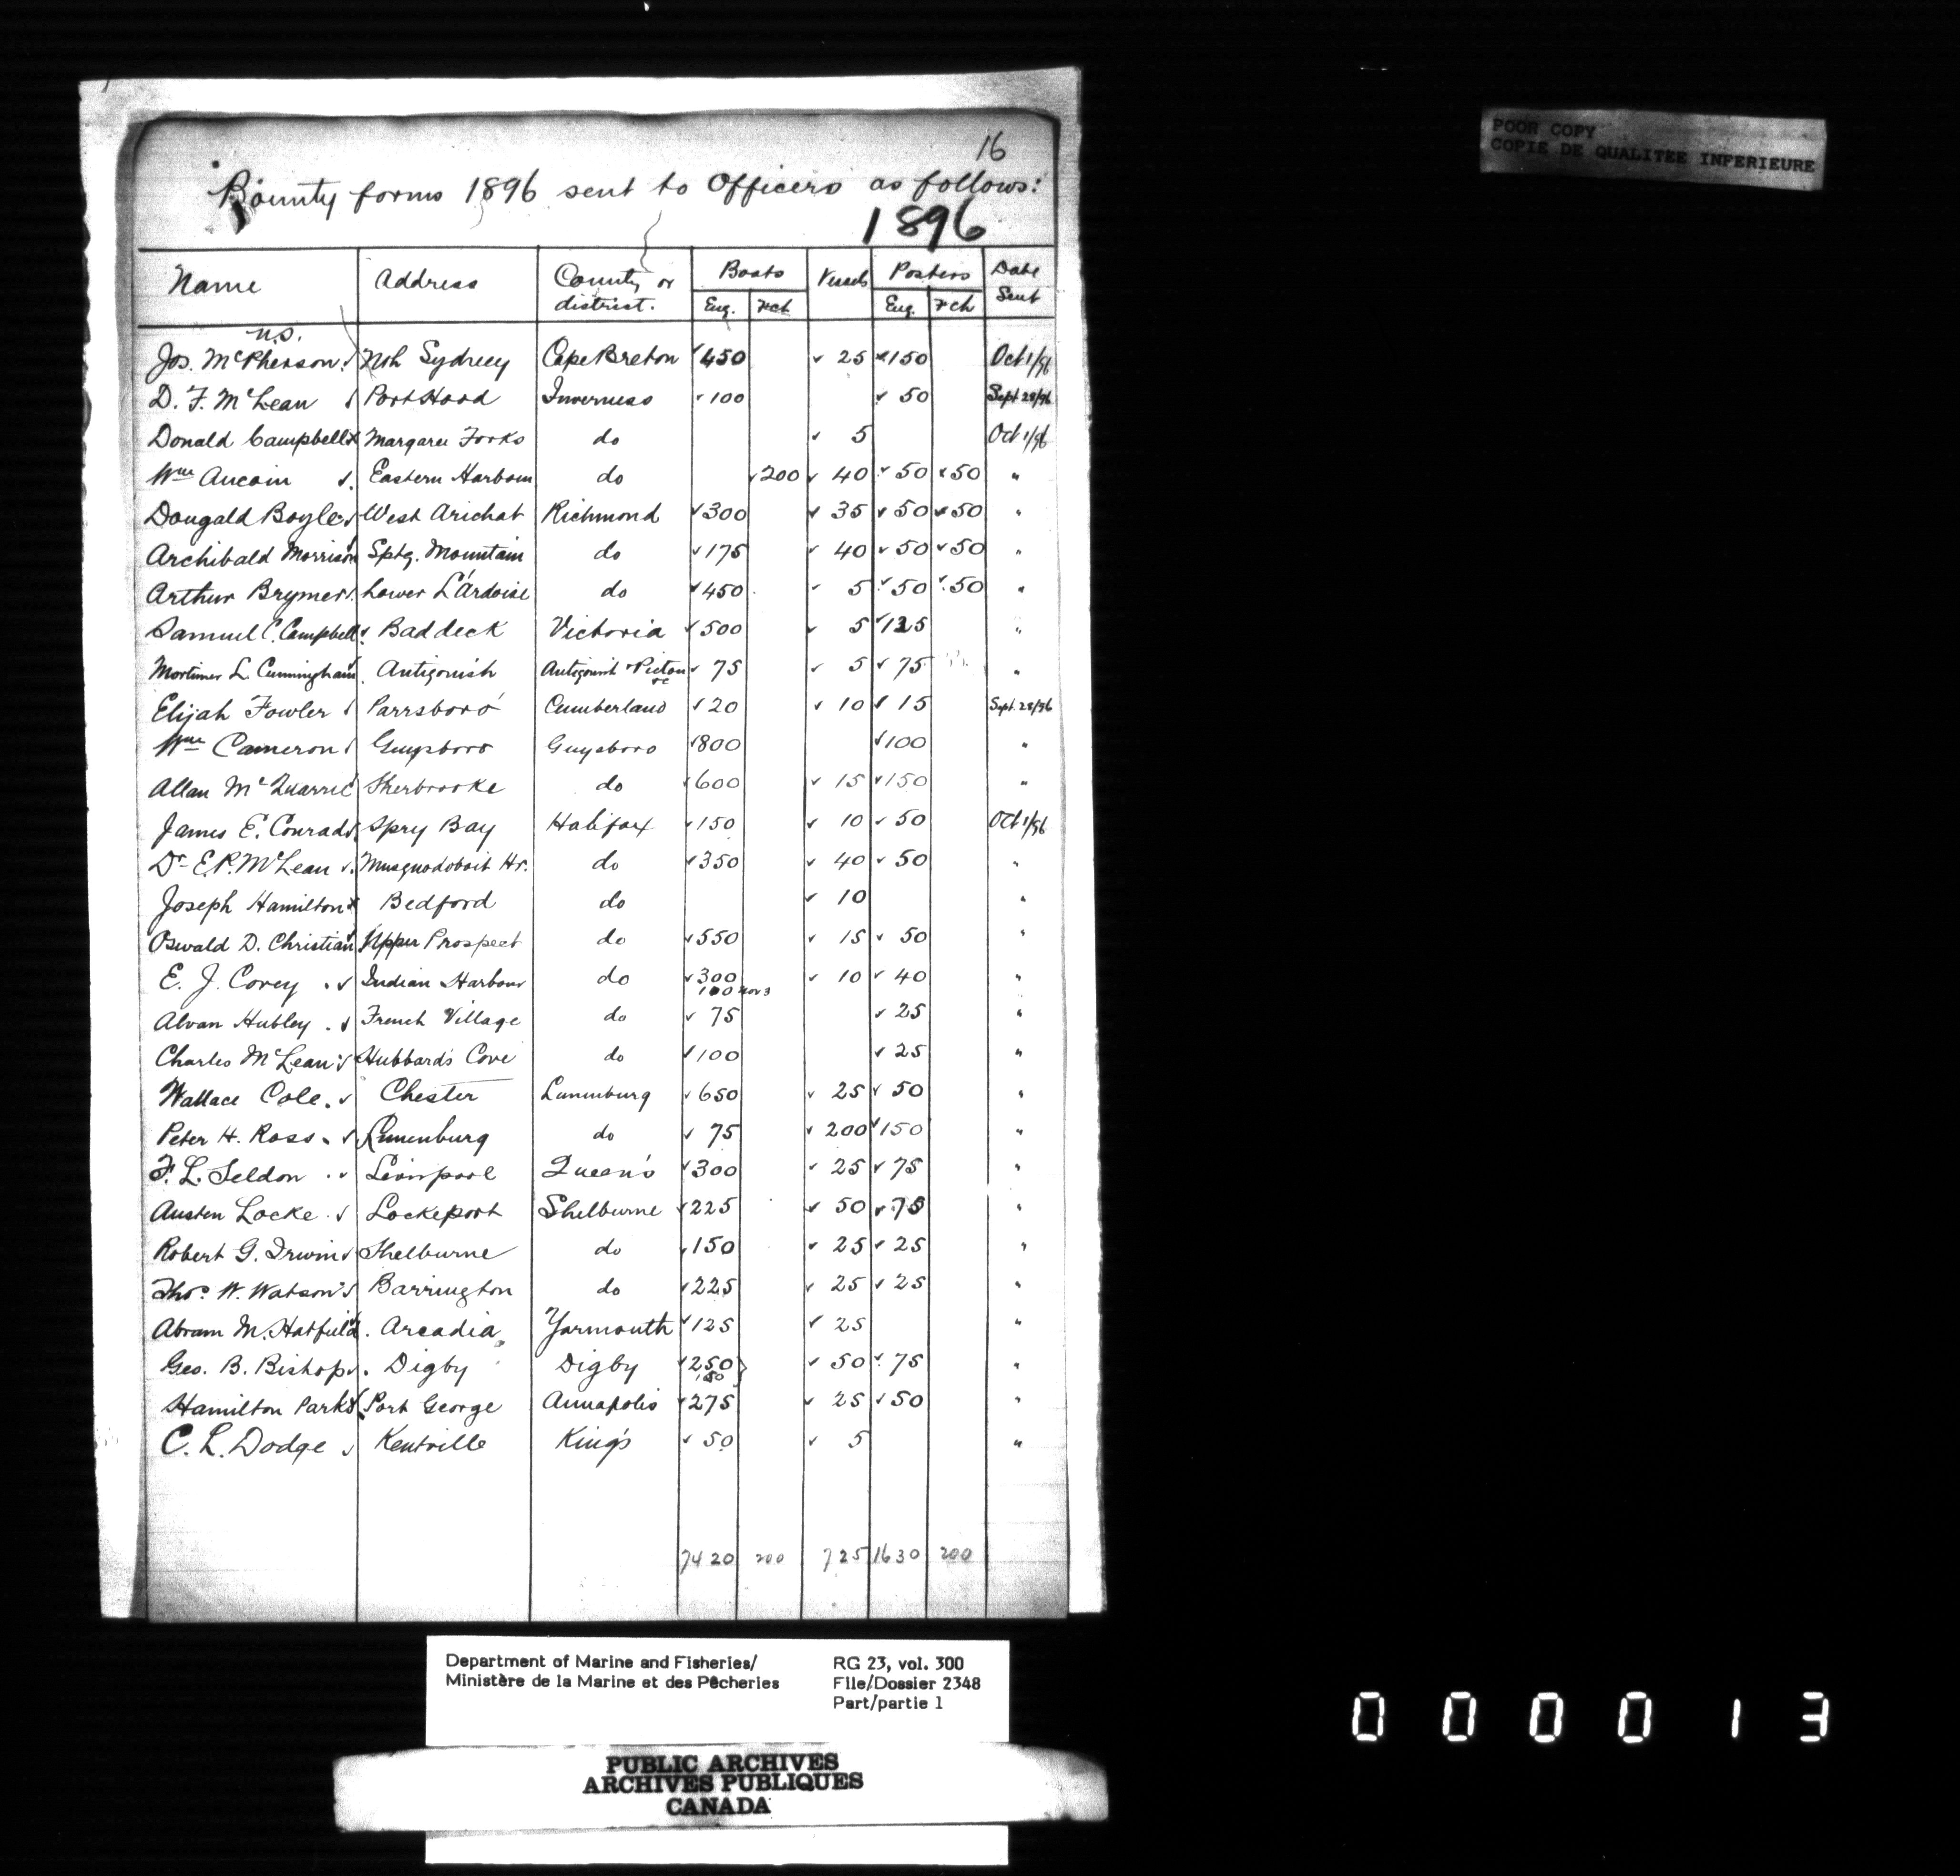 POOR COPY
COPIE DE QUALITEE INFERIEURE
16
Bounty forms 1896 sent to Officers as follows:
1896
Name Address County or district. Boats Eng. Fch Vessels Posters Eng. Fch Date Sent
N.S.
Jos. McPherson Nth Sydney Cape Breton 450 25 150 Oct 1/96
D. F. McLean Port Hood Inverness 100 50 Sept 28/96
Donald Campbell Margaree Forks do 5 Oct 1/96
Wm Aucoin Eastern Harbour do 200 40 50 50 "
Dougald Boyle West Arichat Richmond 300 35 50 50 "
Archibald Morrison Sptg. Mountain do 175 40 50 50 "
Arthur Brymer Lower L'Ardoise do 450 5 50 50 "
Samuel C. Campbell Baddeck Victoria 500 5 125 "
Mortimer L. Cunningham Antigonish Antigonish & Pictou 75 5 75 "
Elijah Fowler Parrsboro' Cumberland 20 10 15 Sept. 28/96
Wm Cameron Guysboro Guysboro 800 100 "
Allan McQuarrie Sherbrooke do 600 15 150 "
James E. Conrad Spry Bay Halifax 150 10 50 Oct 1/96
Dr E.P. McLean Musquodoboit Hr. do 350 40 50 "
Joseph Hamilton Bedford do 10 "
Oswald D. Christian Upper Prospect do 550 15 50 "
E. J. Covey Indian Harbour do 300 10 40 "
100 Nov 3
Alvan Hubley French Village do 75 25 "
Charles McLean Hubbards Cove do 100 25 "
Wallace Cole Chester Lunenburg 650 25 50 "
Peter H. Ross Lunenburg do 75 200 150 "
F. L. Seldon Liverpool Queen's 300 25 75 "
Austen Locke Lockeport Shelburne 225 50 75 "
Robert G. Irwin Shelburne do 150 25 25 "
Thos. W. Watson Barrington do 225 25 25 "
Abram M. Hatfield Arcadia Yarmouth 125 25 "
Geo. B. Bishop Digby Digby 250 50 75 "
150
Hamilton Parks Port George Annapolis 275 25 50 "
C. L. Dodge Kentville King's 50 5 "
7420 200 725 1630 200
Department of Marine and Fisheries/
Ministère de la Marine et des Pêcheries
RG 23, vol. 300
File/Dossier 2348
Part/partie 1
PUBLIC ARCHIVES
ARCHIVES PUBLIQUES
CANADA
000013